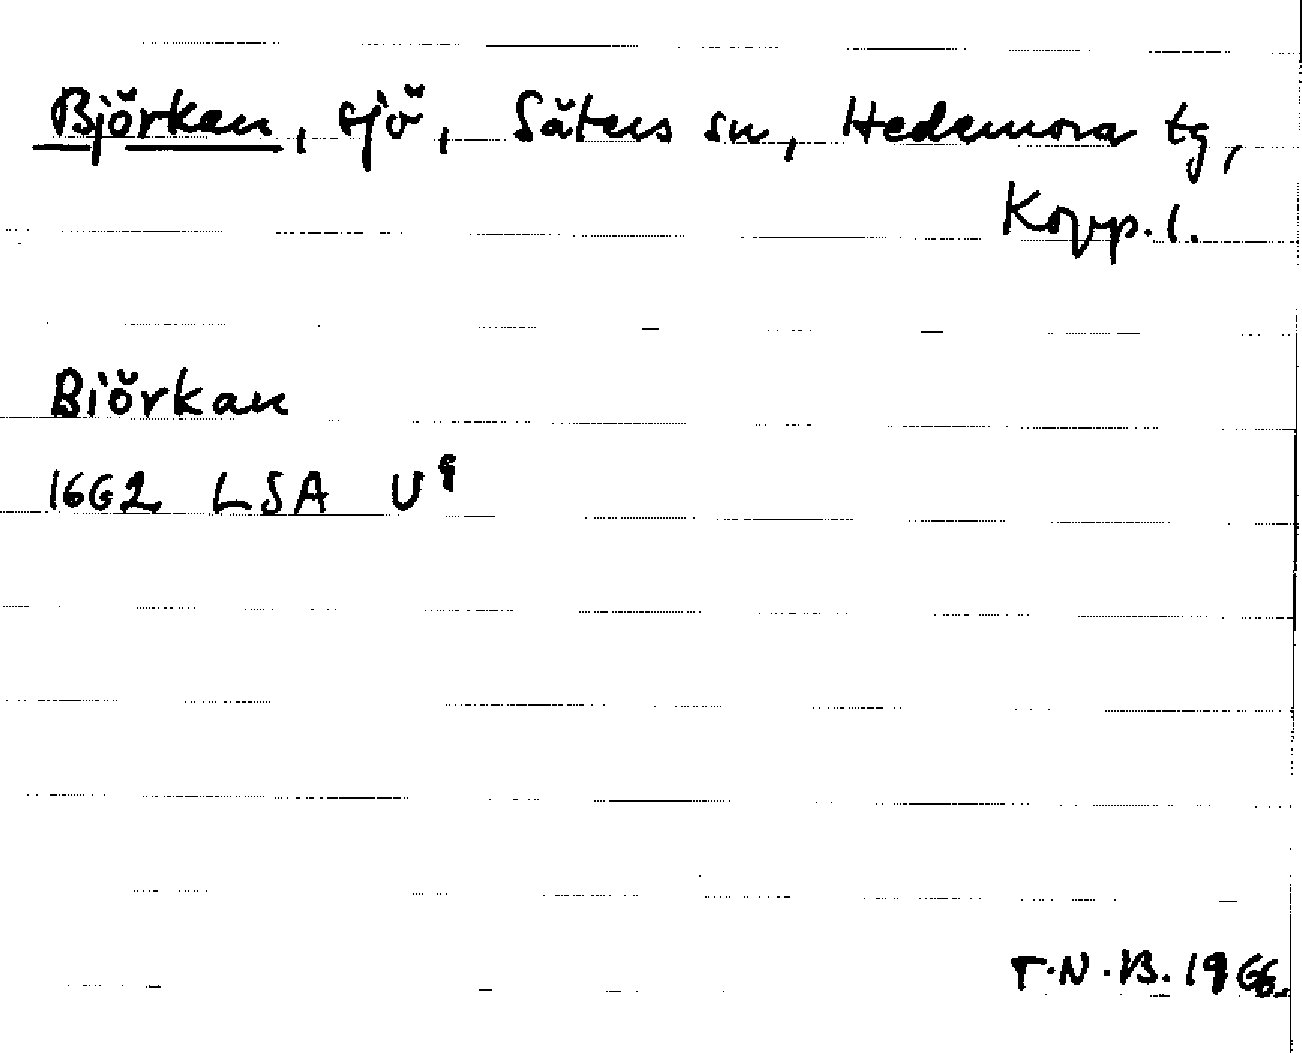 Björken, sjö, Säters sn, Hedemora tg,
Kopp. l.
Biörkan
1662 LSA U⁹
T.N.B. 1966.